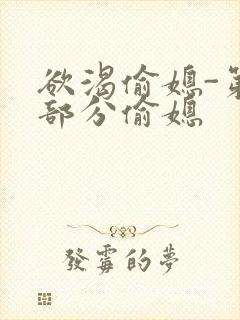 欲渴偷媳-第
部分偷媳
發霉的夢